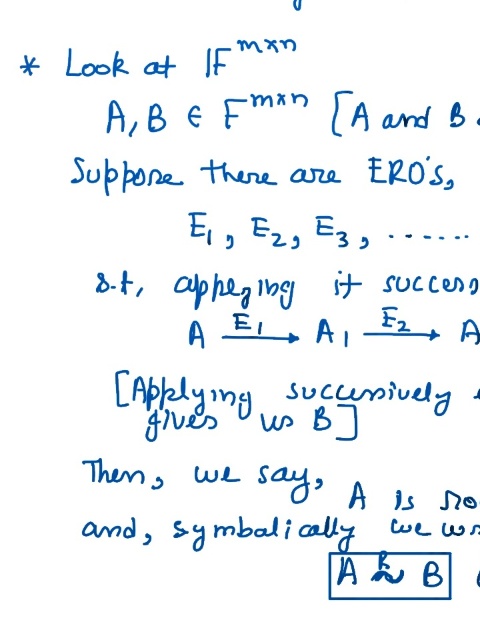 * Look at IF^{m×n}
A, B ∈ F^{m×n} [A and B
Suppose there are ERO's,
E_1, E_2, E_3, ......
s.t, appleing it success
A \xrightarrow{E_1} A_1 \xrightarrow{E_2} A
[Applying successively
gives us B]
Then, we say, A is
and, symbolically we
A \overset{R}{\sim} B